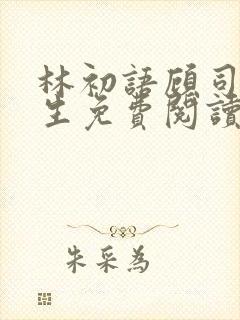 林初語顾司
生免費閱讀
朱采為